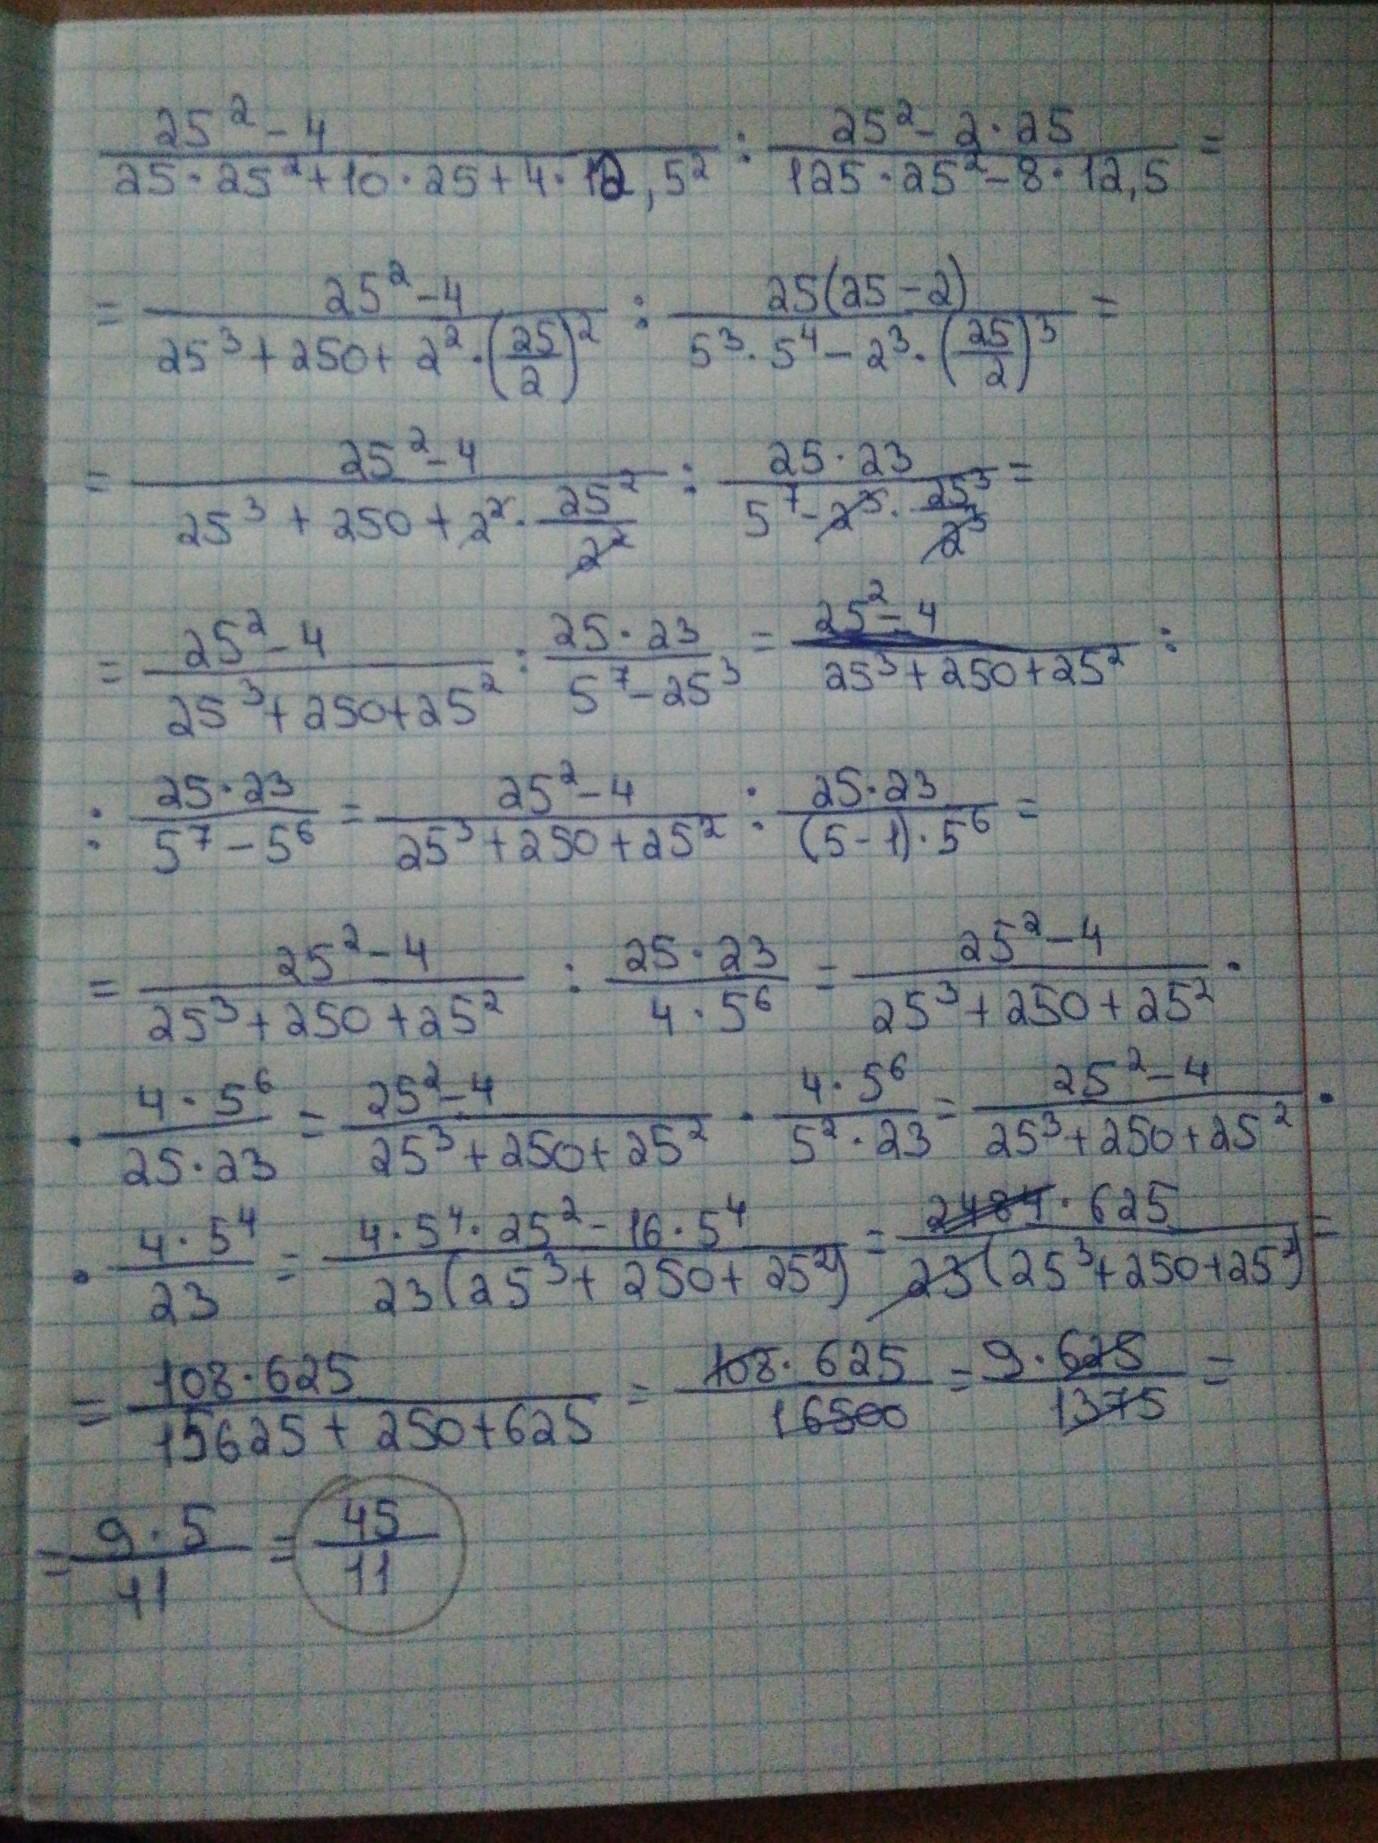 \frac{25^2-4}{25 \cdot 25^2+10 \cdot 25+4 \cdot 12,5^2} : \frac{25^2-2 \cdot 25}{125 \cdot 25^2-8 \cdot 12,5} =
= \frac{25^2-4}{25^3+250+2^2 \cdot (\frac{25}{2})^2} : \frac{25(25-2)}{5^3 \cdot 5^4-2^3 \cdot (\frac{25}{2})^3} =
= \frac{25^2-4}{25^3+250+2^2 \cdot \frac{25^2}{2^2}} : \frac{25 \cdot 23}{5^7-2^3 \cdot \frac{25^3}{2^3}} =
= \frac{25^2-4}{25^3+250+25^2} : \frac{25 \cdot 23}{5^7-25^3} = \frac{25^2-4}{25^3+250+25^2} :
: \frac{25 \cdot 23}{5^7-5^6} = \frac{25^2-4}{25^3+250+25^2} : \frac{25 \cdot 23}{(5-1) \cdot 5^6} =
= \frac{25^2-4}{25^3+250+25^2} : \frac{25 \cdot 23}{4 \cdot 5^6} = \frac{25^2-4}{25^3+250+25^2} \cdot
\cdot \frac{4 \cdot 5^6}{25 \cdot 23} = \frac{25^2-4}{25^3+250+25^2} \cdot \frac{4 \cdot 5^6}{5^2 \cdot 23} = \frac{25^2-4}{25^3+250+25^2} \cdot
\cdot \frac{4 \cdot 5^4}{23} = \frac{4 \cdot 5^4 \cdot 25^2-16 \cdot 5^4}{23(25^3+250+25^2)} = \frac{2484 \cdot 625}{23(25^3+250+25^2)} =
= \frac{108 \cdot 625}{15625+250+625} = \frac{108 \cdot 625}{16500} = \frac{9 \cdot 625}{1375} =
= \frac{9 \cdot 5}{11} = \frac{45}{11}